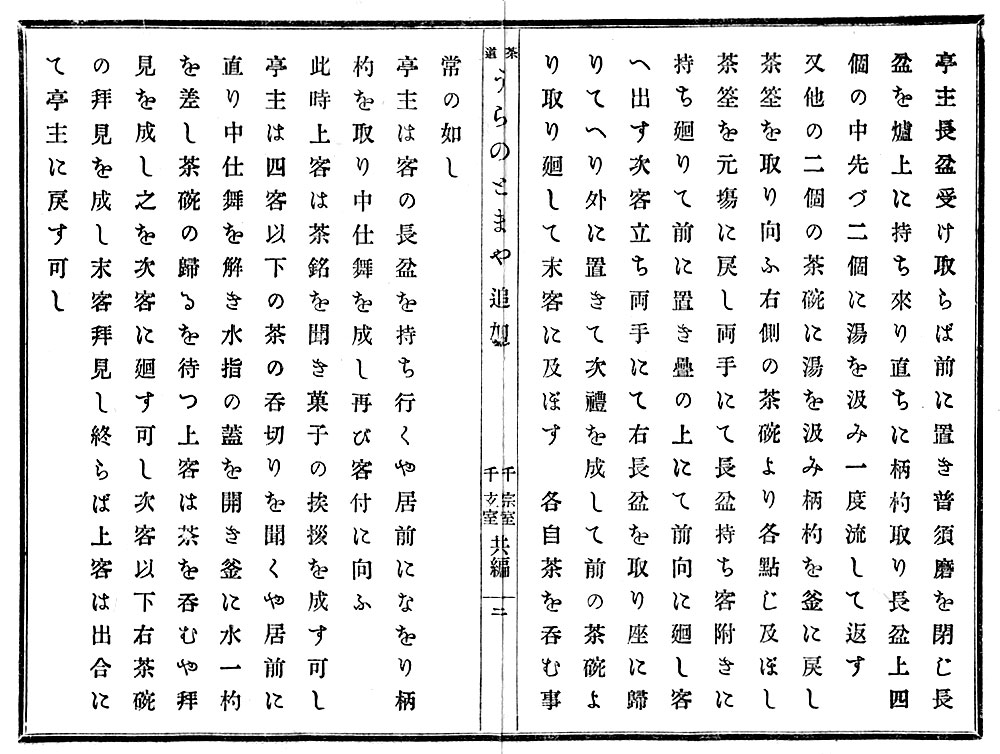 亭主長盆受け取らば前に置き普須磨を閉じ長
盆を爐上に持ち來り直ちに柄杓取り長盆上四
個の中先づ二個に湯を汲み一度流して返す
又他の二個の茶碗に湯を汲み柄杓を釜に戾し
茶筌を取り向ふ右側の茶碗より各點じ及ぼし
茶筌を元塲に戾し両手にて長盆持ち客附きに
持ち廻りて前に置き疊の上にて前向に廻し客
へ出す次客立ち両手にて右長盆を取り座に歸
りてへり外に置きて次禮を成して前の茶碗よ
り取り廻して末客に及ぼす　各自茶を呑む事
茶道 うらのとまや 追加 千宗室 千玄室 共編 二
常の如し
亭主は客の長盆を持ち行くや居前になをり柄
杓を取り中仕舞を成し再び客付に向ふ
此時上客は茶銘を聞き菓子の挨拶を成す可し
亭主は四客以下の茶の呑切りを聞くや居前に
直り中仕舞を解き水指の蓋を開き釜に水一杓
を差し茶碗の歸るを待つ上客は茶を呑むや拜
見を成し之を次客に廻す可し次客以下右茶碗
の拜見を成し末客拜見し終らば上客は出合に
て亭主に戾す可し